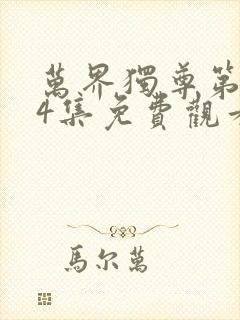 萬界獨尊第
4集免費觀看
馬尔萬